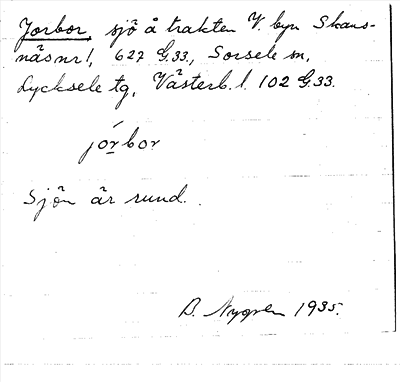 Jorbor, sjö å trakten V. byn Skans-
näs nr 1, 627 G.33., Sorsele sn,
Lycksele tg, Västerb. l. 102 G.33.
jórbor
Sjön är rund.
B. Nygren 1935.